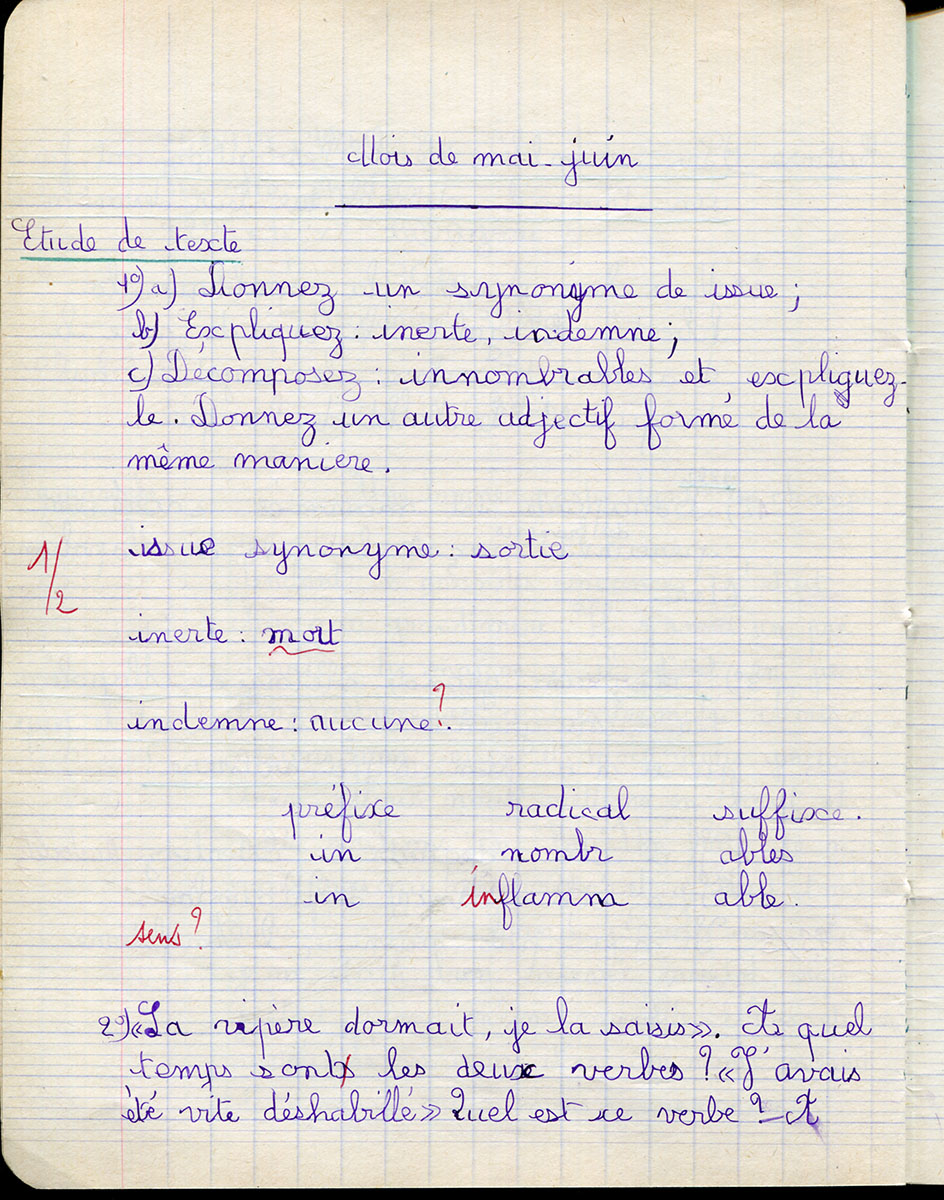 Mois de mai-juin
Etude de texte
1º) a) Donnez un synonyme de issue ;
b) Expliquez : inerte, indemne ;
c) Décomposez : innombrables et expliquez-
le. Donnez un autre adjectif formé de la
même manière.
issue synonyme : sortie
1/2
inerte : mort
indemne : aucune ?.
préfixe radical suffixe.
in nombr ables
in inflamm able.
sens ?
2º) «La vipère dormait, je la saisis». A quel
temps sont les deux verbes ? «J'avais
été vite déshabillé» Quel est ce verbe ? - A